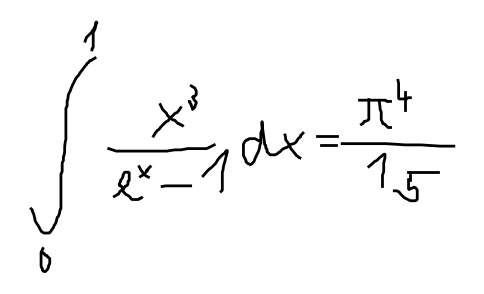 ∫₀¹ x³/(eˣ − 1) dx = π⁴/15